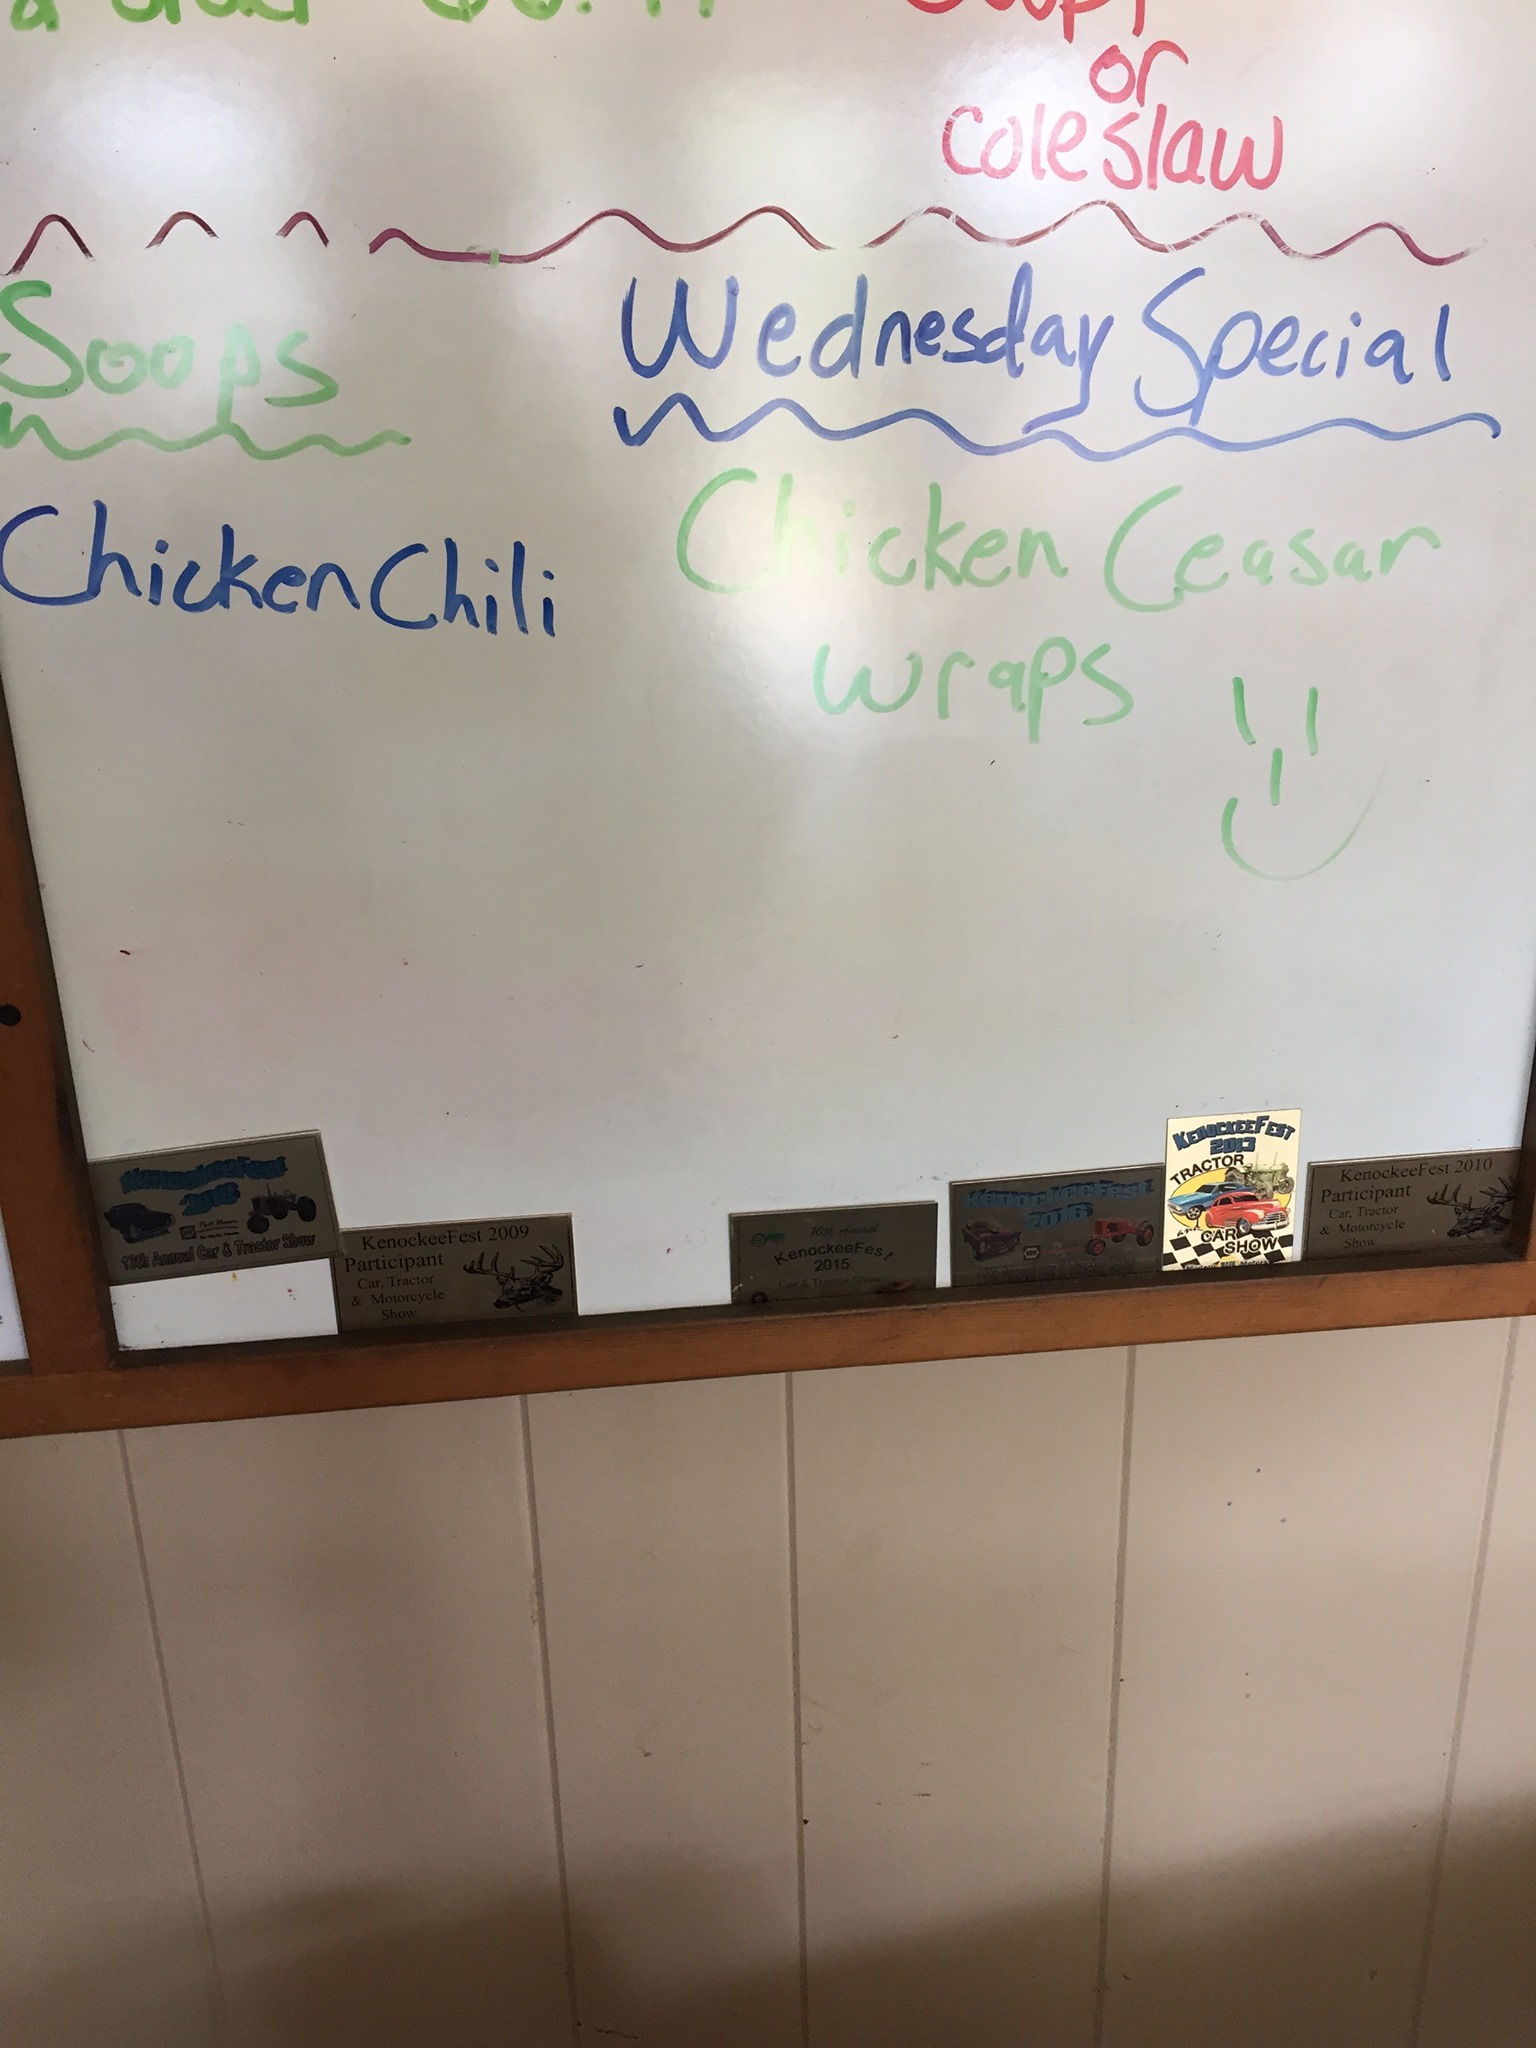 or
coleslaw
Soops
Wednesday Special
Chicken Chili
Chicken Ceasar
wraps
KenockeeFest
2018
13th Annual Car & Tractor Show
KenockeeFest 2009
Participant
Car, Tractor
& Motorcycle
Show
10th Annual
KenockeeFest
2015
Car & Tractor Show
KenockeeFest
2016
KenockeeFest
2013
TRACTOR
and
CAR
SHOW
KenockeeFest 2010
Participant
Car, Tractor
& Motorcycle
Show